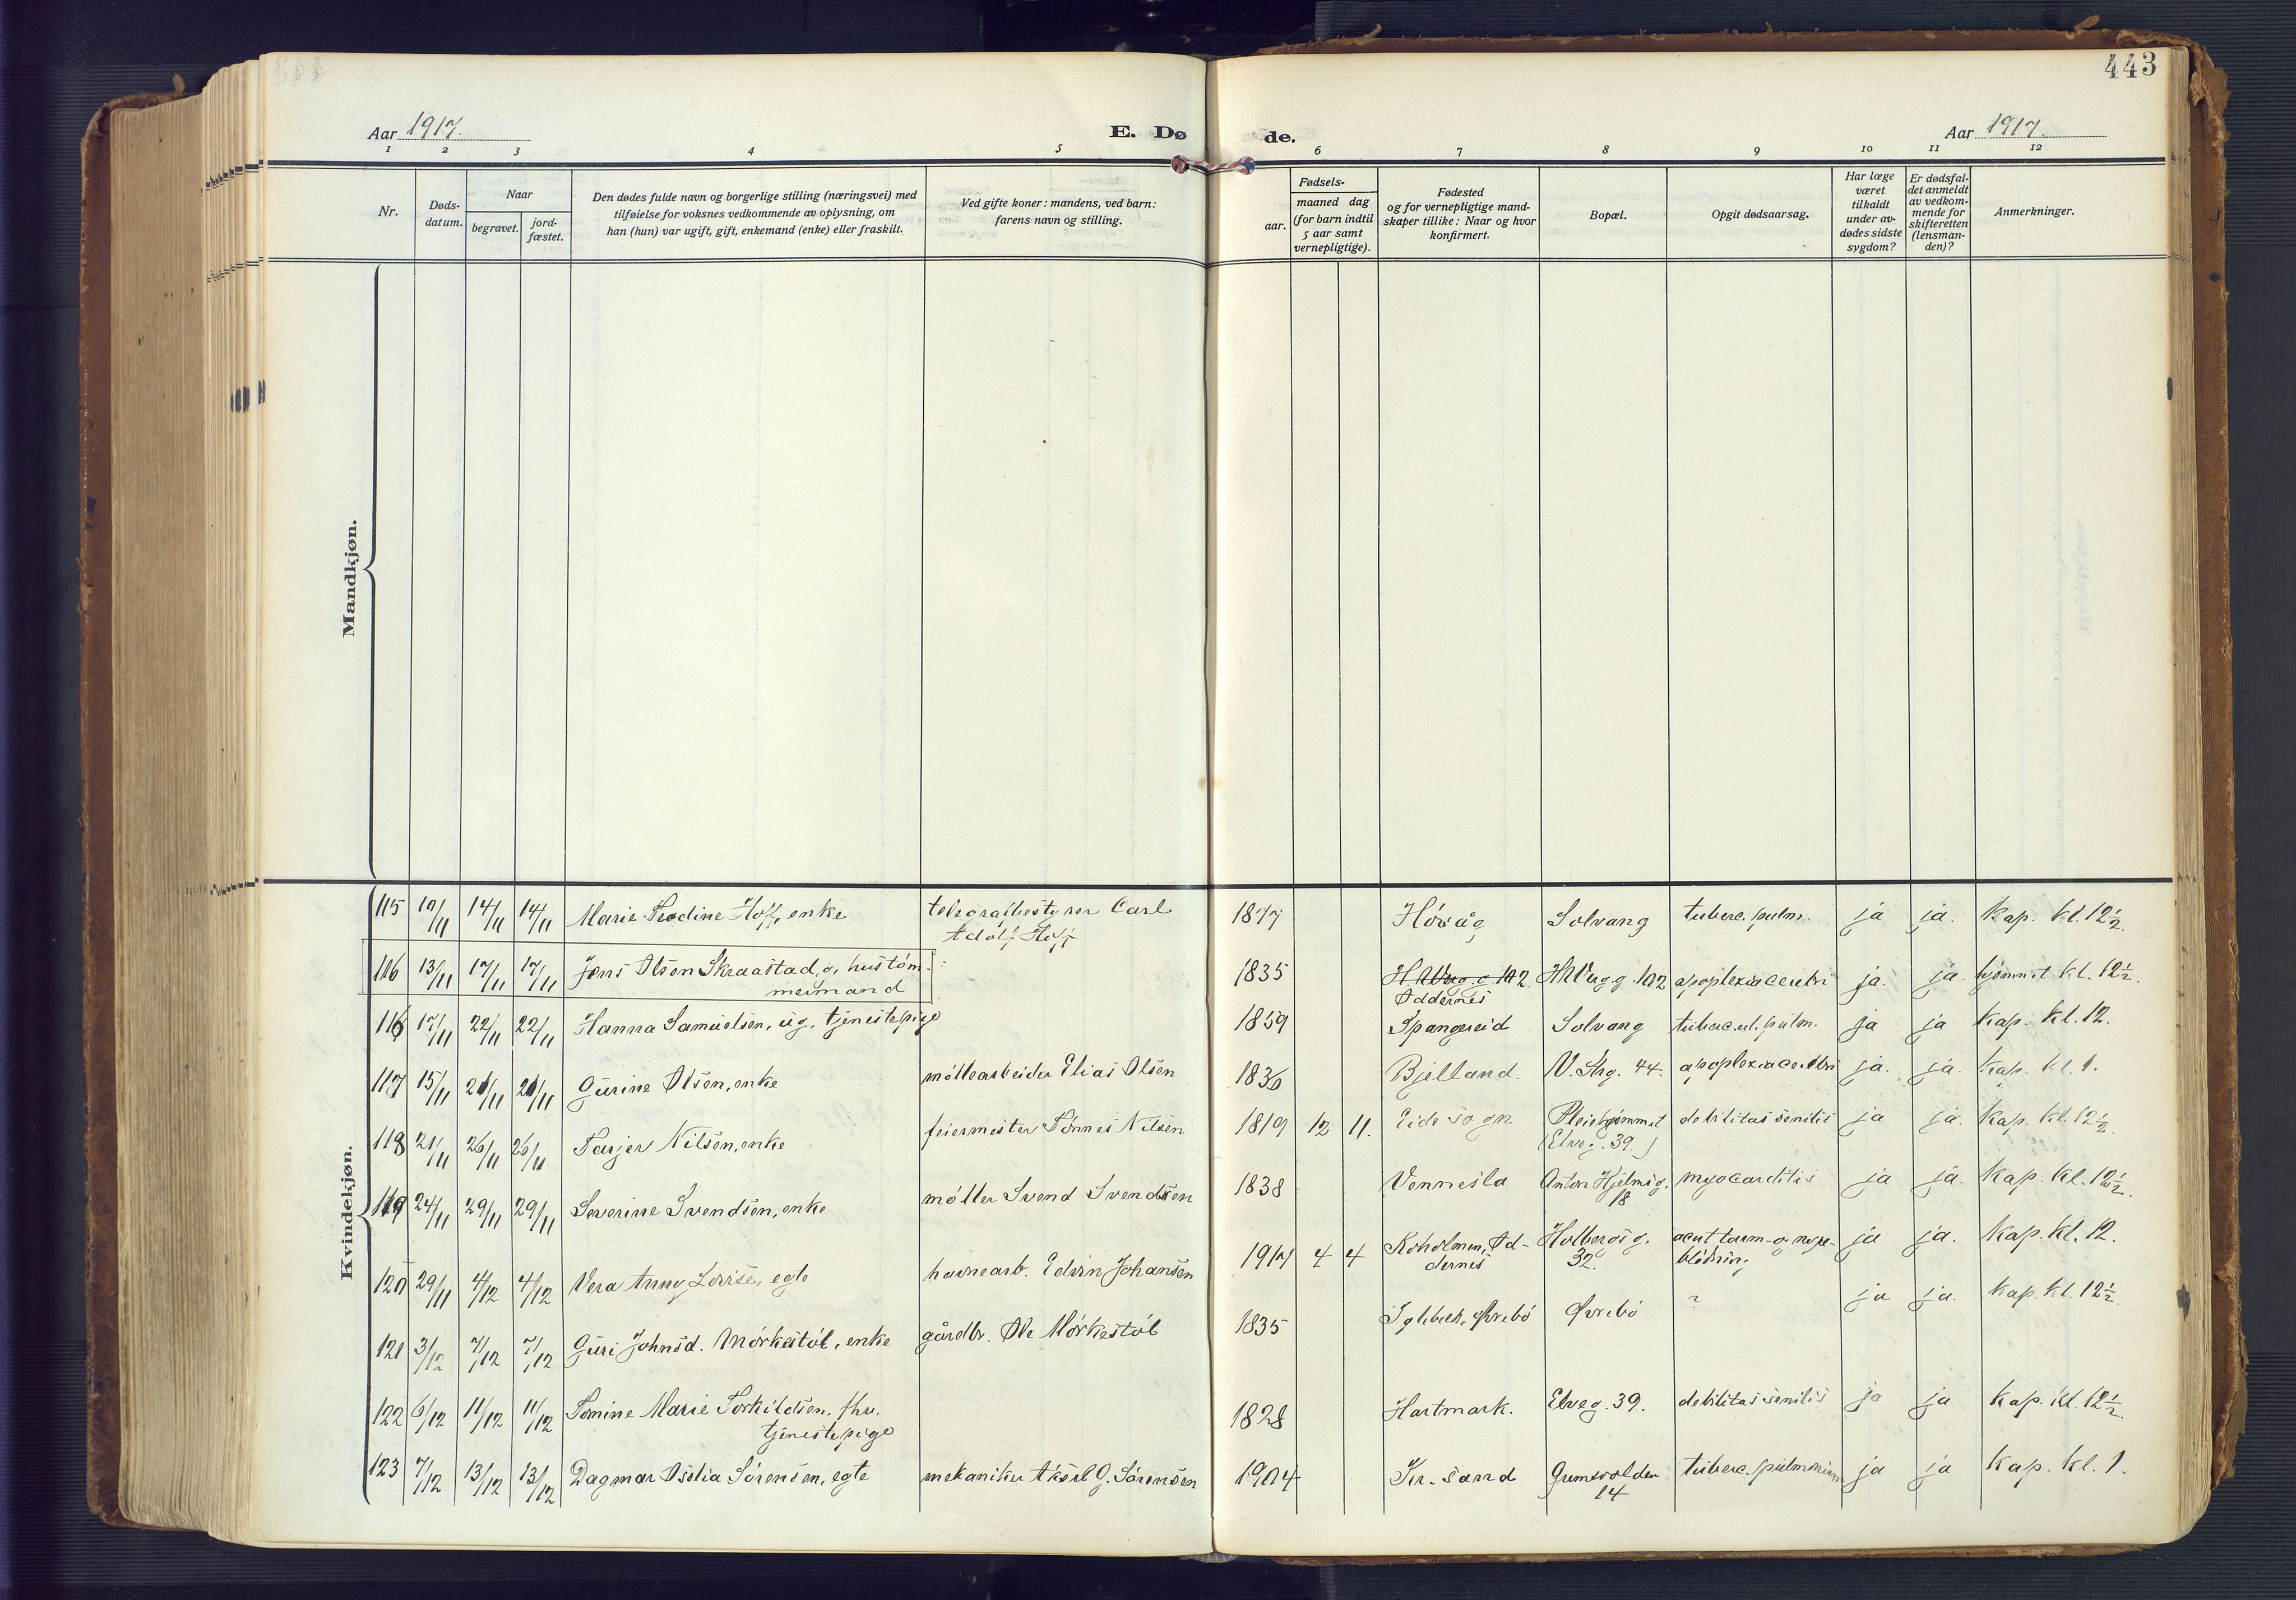 443
Aar 1917.
E. Døde.
Aar 1917.
1 2 3 4 5 6 7 8 9 10 11 12
Nr.
Døds-
datum.
Naar
begravet.
jord-
fæstet.
Den dødes fulde navn og borgerlige stilling (næringsvei) med
tilføielse for voksnes vedkommende av oplysning, om
han (hun) var ugift, gift, enkemand (enke) eller fraskilt.
Ved gifte koner: mandens, ved barn:
farens navn og stilling.
Fødsels-
aar.
maaned dag
(for barn indtil
5 aar samt
vernepligtige).
Fødested
og for vernepligtige mand-
skaper tillike: Naar og hvor
konfirmert.
Bopæl.
Opgit dødsaarsag.
Har læge
været
tilkaldt
under av-
dødes sidste
sygdom?
Er dødsfal-
det anmeldt
av vedkom-
mende for
skifteretten
(lensman-
den)?
Anmerkninger.
Mandkjøn.
Kvindekjøn.
115 10/11 14/11 14/11 Marie Teodine Hoff, enke telegrafbestyrer Carl Adolf Hoff 1877 Høvåg Solvang tuberc. pulm. ja ja. kap. kl. 12½.
116 13/11 17/11 17/11 Jens Olsen Skraastad, g. hustøm-
mermand 1835 Oddernes 102 apoplexia cerebri ja. ja. hjemmet kl. 12½.
116 17/11 22/11 22/11 Hanna Samuelsen, ug., tjenestepige 1859 Spangereid Solvang tubercul. pulm. ja ja kap. kl. 12.
117 15/11 21/11 21/11 Gurine Olsen, enke møllearbeider Elias Olsen 1836 Bjelland. V. Strg. 44. apoplexia cerebri ja. ja. kap. kl. 1.
118 21/11 26/11 26/11 Tarjer Nilsen, enke feiermester Tønnes Nilsen 1819 12 11. Eide sogn Pleiehjemmet
(Elveg. 39.) debilitas senilis ja ja. kap. kl. 12½.
119 24/11 29/11 29/11 Severine Svendsen, enke møller Svend Svendsen 1838 Vennesla Anton Hjelmsg.
18 myocarditis ja ja. kap. kl. 12½.
120 29/11 4/12 4/12 Vera Anny Lovise, egte havnearb. Edvin Johansen 1917 4 4 Koholmen, Od-
dernes Holbergs g.
32. acut tarm- og nyre-
blødning ja ja. kap. kl. 12.
121 3/12 7/12 7/12 Guri Johnsd. Mørkestøl, enke gårdbr. Ole Mørkestøl 1835 Øvrebø Øvrebø ? ja ja. kap. kl. 12½.
122 6/12 11/12 11/12 Tomine Marie Torkildsen, fhv.
tjenestepige 1828 Hartmark. Elveg. 39. debilitas senilis ja ja kap. kl. 12½.
123 7/12 13/12 13/12 Dagmar Oselia Sørensen, egte mekaniker Aksel G. Sørensen 1904 Kr.sand Grimsvolden
14 tuberc. pulmonum ja ja kap. kl. 1.